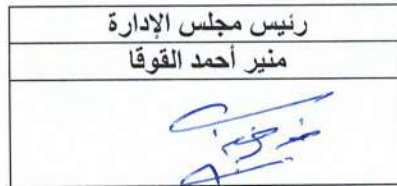 رئيس مجلس الإدارة
منير أحمد القوقا